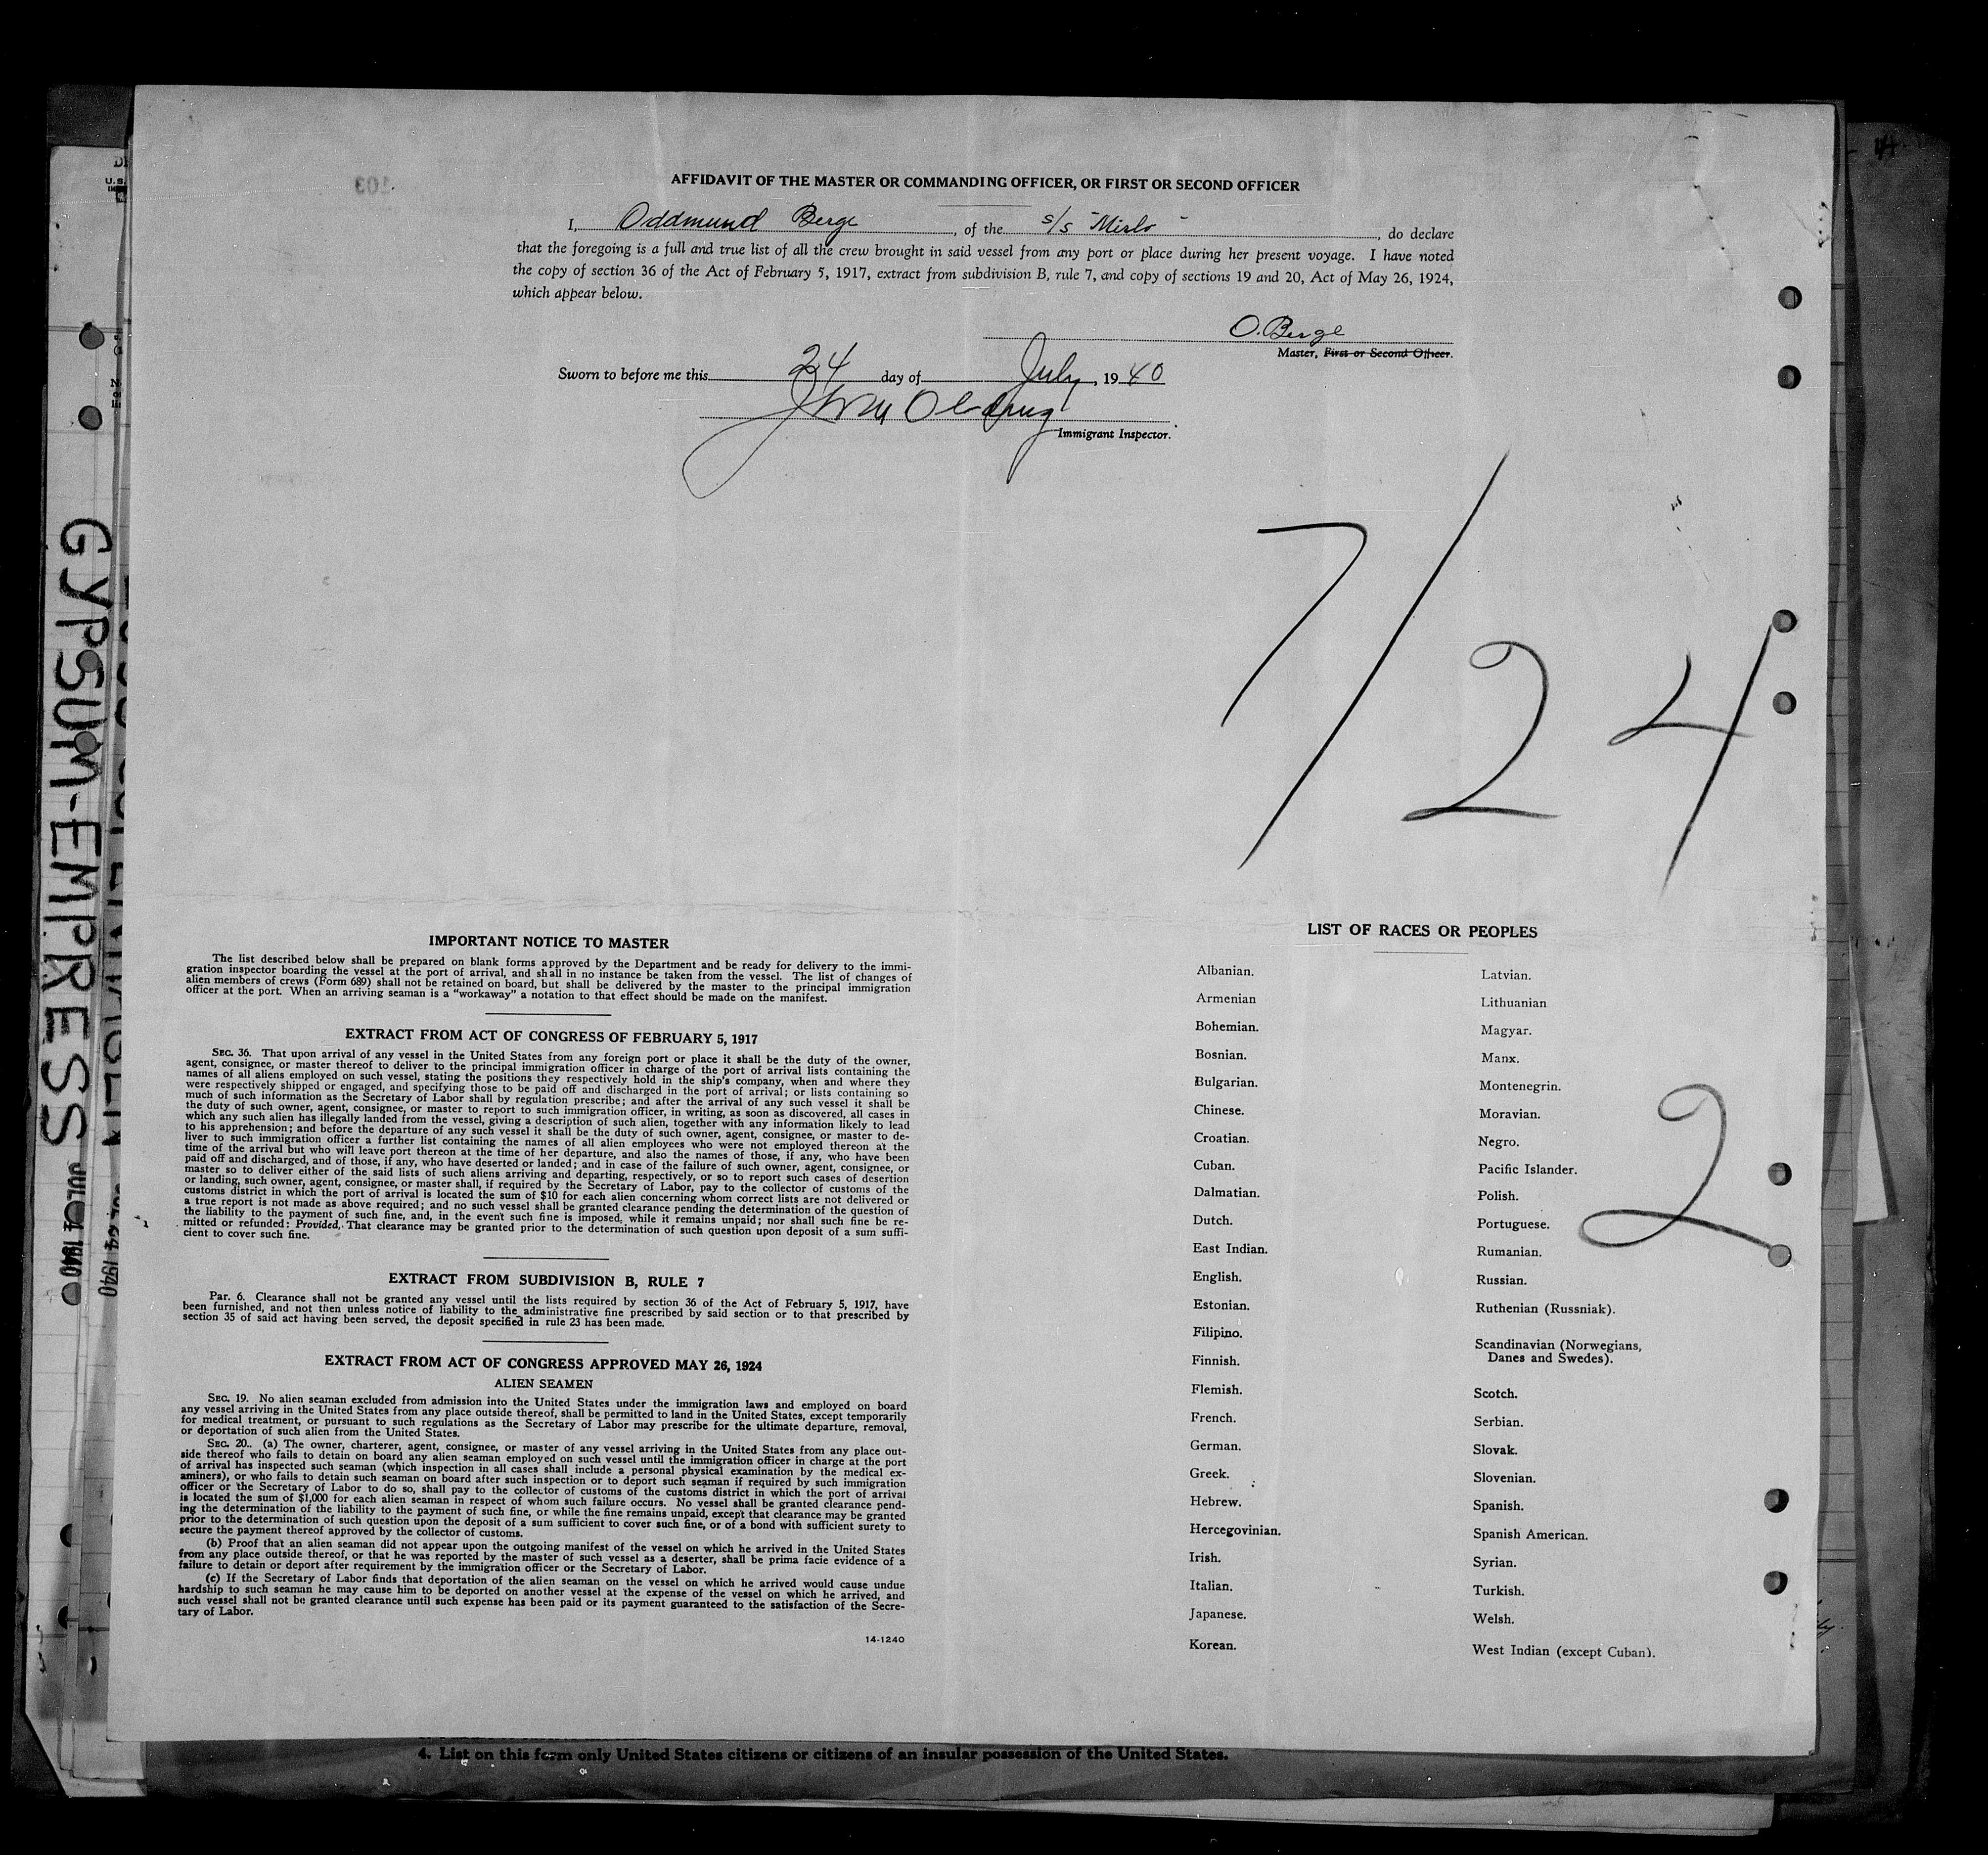 AFFIDAVIT OF THE MASTER OR COMMANDING OFFICER, OR FIRST OR SECOND OFFICER
I, Oddmund Berge, of the s/s "Mirlo", do declare
that the foregoing is a full and true list of all the crew brought in said vessel from any port or place during her present voyage. I have noted
the copy of section 36 of the Act of February 5, 1917, extract from subdivision B, rule 7, and copy of sections 19 and 20, Act of May 26, 1924,
which appear below.
O. Berge
Master, First or Second Officer.
Sworn to before me this 24 day of July, 1940
Immigrant Inspector.
7/24
2
IMPORTANT NOTICE TO MASTER
The list described below shall be prepared on blank forms approved by the Department and be ready for delivery to the immi-
gration inspector boarding the vessel at the port of arrival, and shall in no instance be taken from the vessel. The list of changes of
alien members of crews (Form 689) shall not be retained on board, but shall be delivered by the master to the principal immigration
officer at the port. When an arriving seaman is a "workaway" a notation to that effect should be made on the manifest.
EXTRACT FROM ACT OF CONGRESS OF FEBRUARY 5, 1917
SEC. 36. That upon arrival of any vessel in the United States from any foreign port or place it shall be the duty of the owner,
agent, consignee, or master thereof to deliver to the principal immigration officer in charge of the port of arrival lists containing the
names of all aliens employed on such vessel, stating the positions they respectively hold in the ship's company, when and where they
were respectively shipped or engaged, and specifying those to be paid off and discharged in the port of arrival; or lists containing so
much of such information as the Secretary of Labor shall by regulation prescribe; and after the arrival of any such vessel it shall be
the duty of such owner, agent, consignee, or master to report to such immigration officer, in writing, as soon as discovered, all cases in
which any such alien has illegally landed from the vessel, giving a description of such alien, together with any information likely to lead
to his apprehension; and before the departure of any such vessel it shall be the duty of such owner, agent, consignee, or master to de-
liver to such immigration officer a further list containing the names of all alien employees who were not employed thereon at the
time of the arrival but who will leave port thereon at the time of her departure, and also the names of those, if any, who have been
paid off and discharged, and of those, if any, who have deserted or landed; and in case of the failure of such owner, agent, consignee, or
master so to deliver either of the said lists of such aliens arriving and departing, respectively, or so to report such cases of desertion
or landing, such owner, agent, consignee, or master shall, if required by the Secretary of Labor, pay to the collector of customs of the
customs district in which the port of arrival is located the sum of $10 for each alien concerning whom correct lists are not delivered or
a true report is not made as above required; and no such vessel shall be granted clearance pending the determination of the question of
the liability to the payment of such fine, and, in the event such fine is imposed, while it remains unpaid; nor shall such fine be re-
mitted or refunded: Provided, That clearance may be granted prior to the determination of such question upon deposit of a sum suffi-
cient to cover such fine.
EXTRACT FROM SUBDIVISION B, RULE 7
Par. 6. Clearance shall not be granted any vessel until the lists required by section 36 of the Act of February 5, 1917, have
been furnished, and not then unless notice of liability to the administrative fine prescribed by said section or to that prescribed by
section 35 of said act having been served, the deposit specified in rule 23 has been made.
EXTRACT FROM ACT OF CONGRESS APPROVED MAY 26, 1924
ALIEN SEAMEN
SEC. 19. No alien seaman excluded from admission into the United States under the immigration laws and employed on board
any vessel arriving in the United States from any place outside thereof, shall be permitted to land in the United States, except temporarily
for medical treatment, or pursuant to such regulations as the Secretary of Labor may prescribe for the ultimate departure, removal,
or deportation of such alien from the United States.
SEC. 20. (a) The owner, charterer, agent, consignee, or master of any vessel arriving in the United States from any place out-
side thereof who fails to detain on board any alien seaman employed on such vessel until the immigration officer in charge at the port
of arrival has inspected such seaman (which inspection in all cases shall include a personal physical examination by the medical ex-
aminers), or who fails to detain such seaman on board after such inspection or to deport such seaman if required by such immigration
officer or the Secretary of Labor to do so, shall pay to the collector of customs of the customs district in which the port of arrival
is located the sum of $1,000 for each alien seaman in respect of whom such failure occurs. No vessel shall be granted clearance pend-
ing the determination of the liability to the payment of such fine, or while the fine remains unpaid, except that clearance may be granted
prior to the determination of such question upon the deposit of a sum sufficient to cover such fine, or of a bond with sufficient surety to
secure the payment thereof approved by the collector of customs.
(b) Proof that an alien seaman did not appear upon the outgoing manifest of the vessel on which he arrived in the United States
from any place outside thereof, or that he was reported by the master of such vessel as a deserter, shall be prima facie evidence of a
failure to detain or deport after requirement by the immigration officer or the Secretary of Labor.
(c) If the Secretary of Labor finds that deportation of the alien seaman on the vessel on which he arrived would cause undue
hardship to such seaman he may cause him to be deported on another vessel at the expense of the vessel on which he arrived, and
such vessel shall not be granted clearance until such expense has been paid or its payment guaranteed to the satisfaction of the Secre-
tary of Labor.
14-1240
LIST OF RACES OR PEOPLES
Albanian.
Armenian
Bohemian.
Bosnian.
Bulgarian.
Chinese.
Croatian.
Cuban.
Dalmatian.
Dutch.
East Indian.
English.
Estonian.
Filipino.
Finnish.
Flemish.
French.
German.
Greek.
Hebrew.
Hercegovinian.
Irish.
Italian.
Japanese.
Korean.
Latvian.
Lithuanian
Magyar.
Manx.
Montenegrin.
Moravian.
Negro.
Pacific Islander.
Polish.
Portuguese.
Rumanian.
Russian.
Ruthenian (Russniak).
Scandinavian (Norwegians,
Danes and Swedes).
Scotch.
Serbian.
Slovak.
Slovenian.
Spanish.
Spanish American.
Syrian.
Turkish.
Welsh.
West Indian (except Cuban).
4. List on this form only United States citizens or citizens of an insular possession of the United States.
GYPSUM-EMPRESS